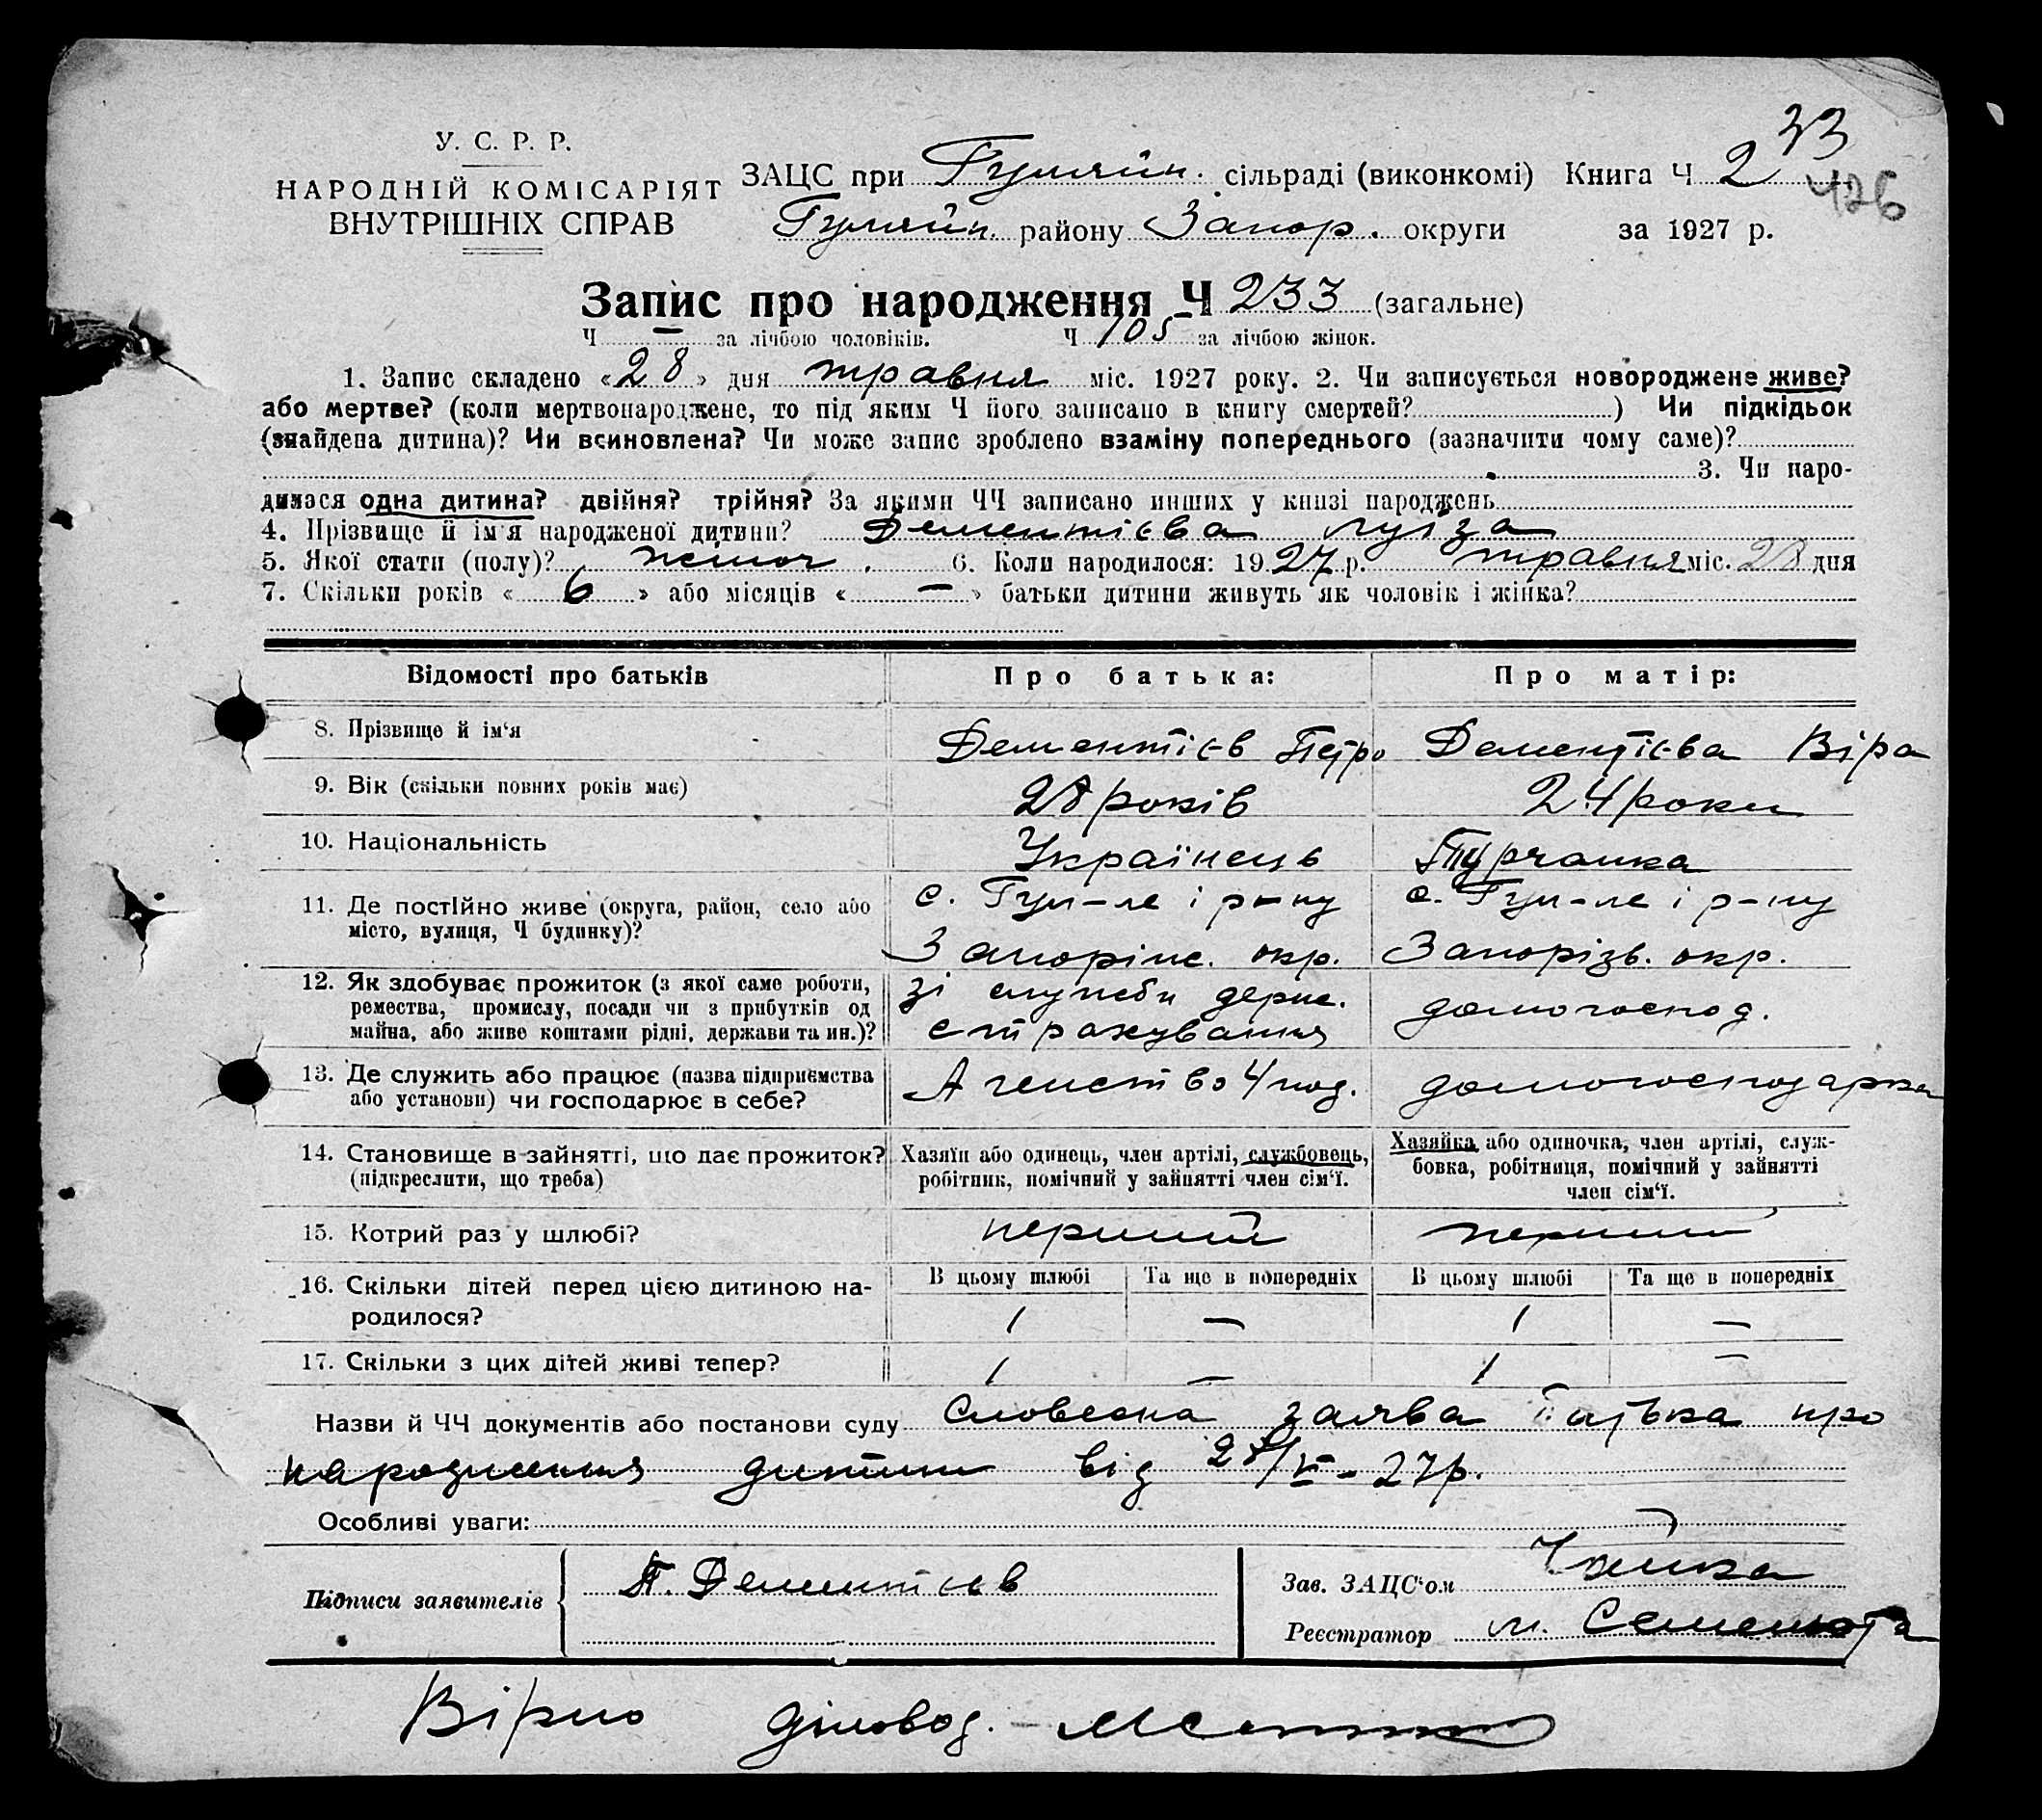 33
У. С. Р. Р.
НАРОДНІЙ КОМІСАРІЯТ
ВНУТРІШНІХ СПРАВ
ЗАЦС при Гуляйп. сільраді (виконкомі) Книга Ч 2
426
Гуляйп. району Запор. округи за 1927 р.
Запис про народження Ч 233 (загальне)
Ч — за лічбою чоловіків. Ч 105 за лічбою жінок.
1. Запис складено «28» дня травня міс. 1927 року. 2. Чи записується новороджене живе?
або мертве? (коли мертвонароджене, то під яким Ч його записано в книгу смертей?) Чи підкідьок
(знайдена дитина)? Чи всиновлена? Чи може запис зроблено взаміну попереднього (зазначити чому саме)?
3. Чи наро-
дилася одна дитина? двійня? трійня? За якими ЧЧ записано инших у книзі народжень
4. Прізвище й ім'я народженої дитини? Дементієва Луіза
5. Якої стати (полу)? жіноч. 6. Коли народилося: 1927 р. травня міс. 28 дня
7. Скільки років «6» або місяців «—» батьки дитини живуть як чоловік і жінка?
Відомості про батьків Про батька: Про матір:
8. Прізвище й ім'я Дементієв Петро Дементієва Віра
9. Вік (скільки повних років має) 28 років 24 роки
10. Національність Українець Турчанка
11. Де постійно живе (округа, район, село або
місто, вулиця, Ч будинку)?
с. Гул-ле і р-ну
Запоріж. окр.
с. Гул-ле і р-ну
Запорізь. окр.
12. Як здобуває прожиток (з якої саме роботи,
ремества, промислу, посади чи з прибутків од
майна, або живе коштами рідні, держави та ин.)?
зі служби держ.
страхування
домогоспод.
13. Де служить або працює (назва підприємства
або установи) чи господарює в себе?
Агенство
домогосподарка
14. Становище в зайнятті, що дає прожиток?
(підкреслити, що треба)
Хазяїн або одинець, член артілі, службовець,
робітник, помічний у зайнятті член сім'ї.
Хазяйка або одиночка, член артілі, служ-
бовка, робітниця, помічний у зайнятті
член сім'ї.
15. Котрий раз у шлюбі? перший перший
16. Скільки дітей перед цією дитиною на-
родилося?
В цьому шлюбі Та ще в попередніх В цьому шлюбі Та ще в попередніх
1 — 1 —
17. Скільки з цих дітей живі тепер? 1 — 1 —
Назви й ЧЧ документів або постанови суду Словесна заява батька про
народження дитини від 28/V-27р.
Особливі уваги:
Підписи заявителів П. Дементієв
Зав. ЗАЦС'ом
Реєстратор М. Семенюта
Вірно діловод.